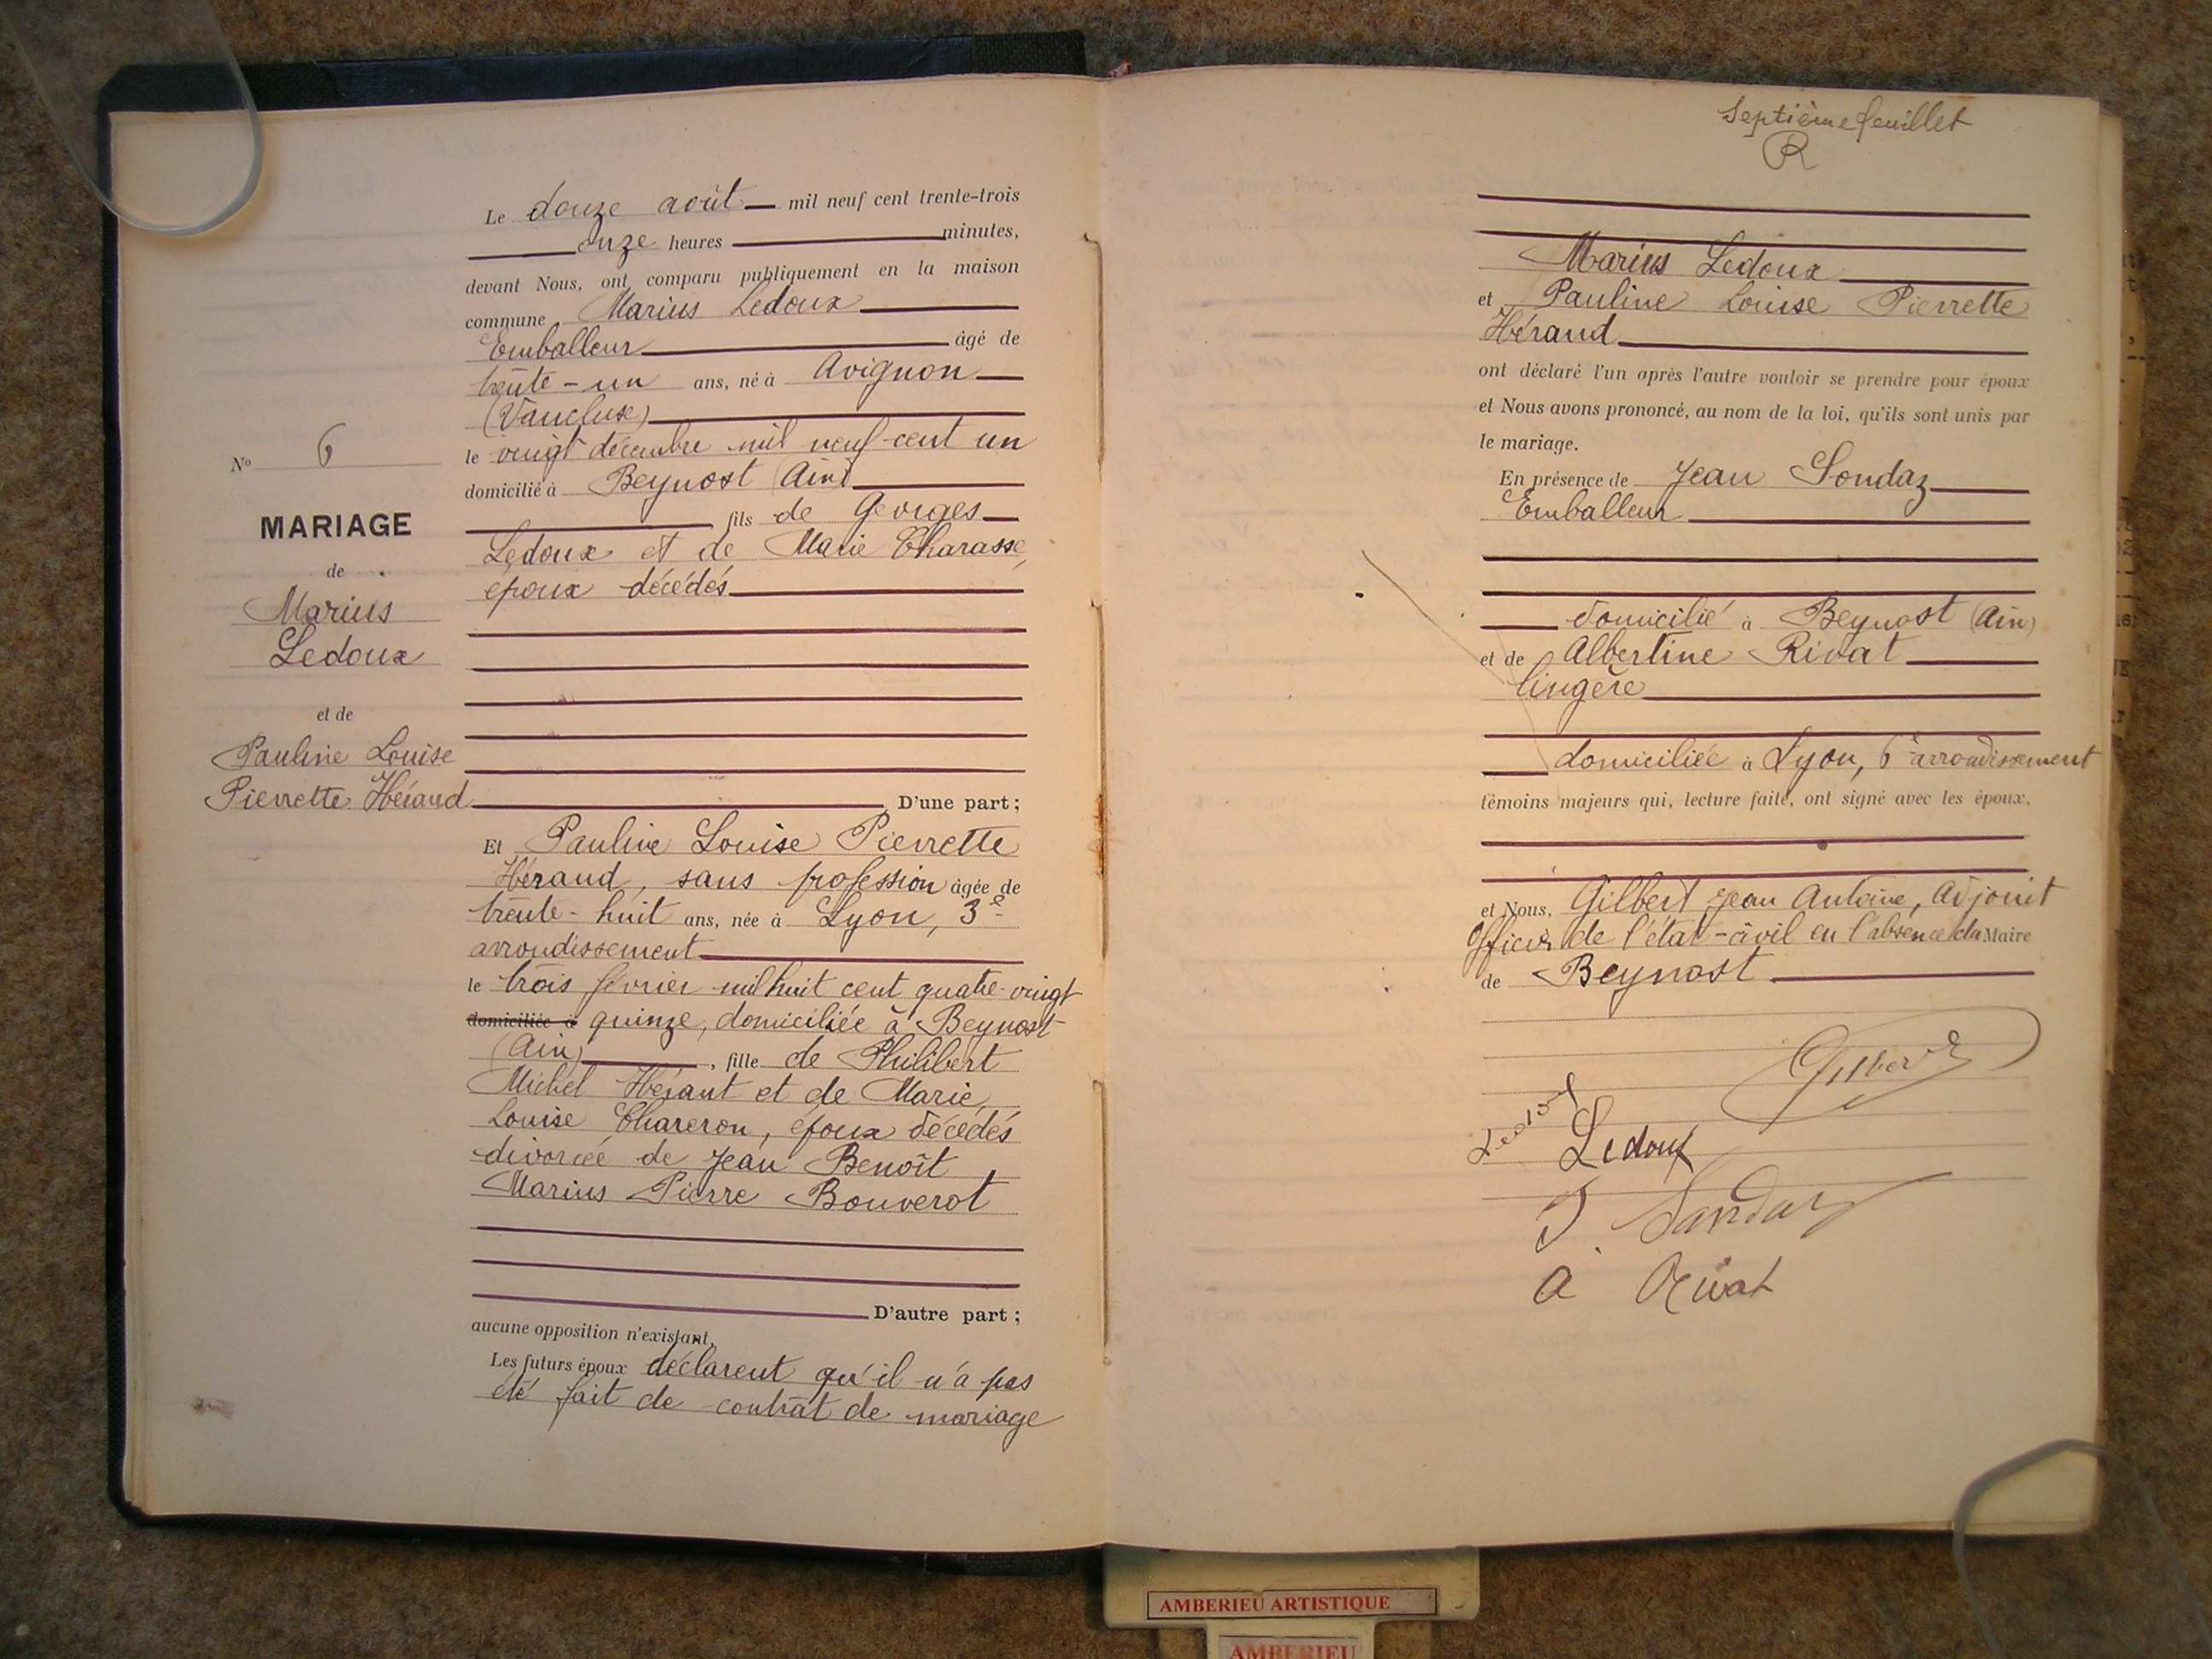 Le douze août mil neuf cent trente-trois
onze heures minutes,
devant Nous, ont comparu publiquement en la maison
commune Marius Ledoux
Emballeur âgé de
trente-un ans, né à Avignon
(Vaucluse)
le vingt décembre mil neuf cent un
domicilié à Beynost (Ain)
fils de Georges
Ledoux et de Marie Charasse,
époux décédés
D'une part ;
N° 6
MARIAGE
de
Marius
Ledoux
et de
Pauline Louise
Pierrette Héraud
Et Pauline Louise Pierrette
Héraud, sans profession âgée de
trente-huit ans, née à Lyon, 3e
arrondissement
le trois février mil huit cent quatre-vingt
domiciliée à quinze, domiciliée à Beynost
(Ain), fille de Philibert
Michel Héraut et de Marie
Louise Chareron, époux décédés
divorcée de Jean Benoît
Marius Pierre Bouverot
D'autre part ;
aucune opposition n'existant,
Les futurs époux déclarent qu'il n'a pas
été fait de contrat de mariage
Septième feuillet
R
Marius Ledoux
et Pauline Louise Pierrette
Héraud
ont déclaré l'un après l'autre vouloir se prendre pour époux
et Nous avons prononcé, au nom de la loi, qu'ils sont unis par
le mariage.
En présence de Jean Sondaz
Emballeur
domicilié à Beynost (Ain)
et de Albertine Rivat
lingère
domiciliée à Lyon, 6e arrondissement
témoins majeurs qui, lecture faite, ont signé avec les époux.
et Nous, Gilbert Jean Antoine, Adjoint
Officier de l'état-civil en l'absence du Maire
de Beynost
Gilbert
Ledoux
J. Sondaz
A Rivat
AMBERIEU ARTISTIQUE
AMBERIEU